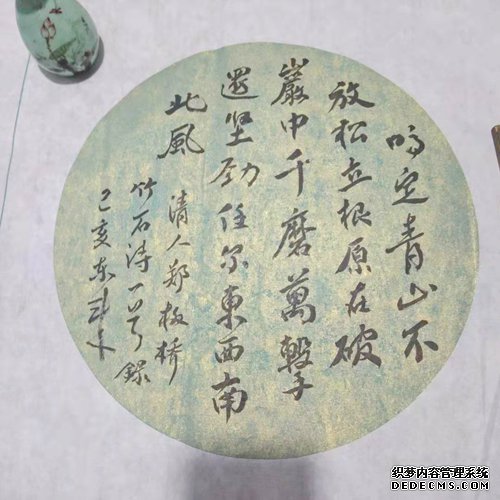 咬定青山不
放松立根原在破
巖中千磨萬擊
還坚劲任尔東西南
北風
清人郑板桥
竹石诗一首錄
己亥
织梦内容管理系统
DEDECMS.COM